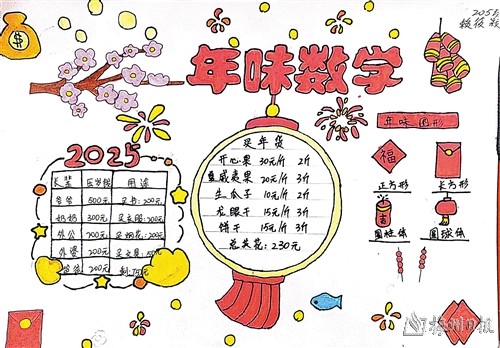 年味数学
2025
长辈 压岁钱 用途
爷爷 500元 买书:200元
奶奶 300元 买衣服:200元
外公 200元
外婆 200元
爸爸 200元
买年货
开心果 30元/斤 2斤
夏威夷果 20元/斤 3斤
生瓜子 10元/斤 2斤
龙眼干 15元/斤 3斤
饼干 15元/斤 3斤
总共花:230元
年味图形
福
正方形 长方形
吉
圆柱体 圆球体
梅州日报